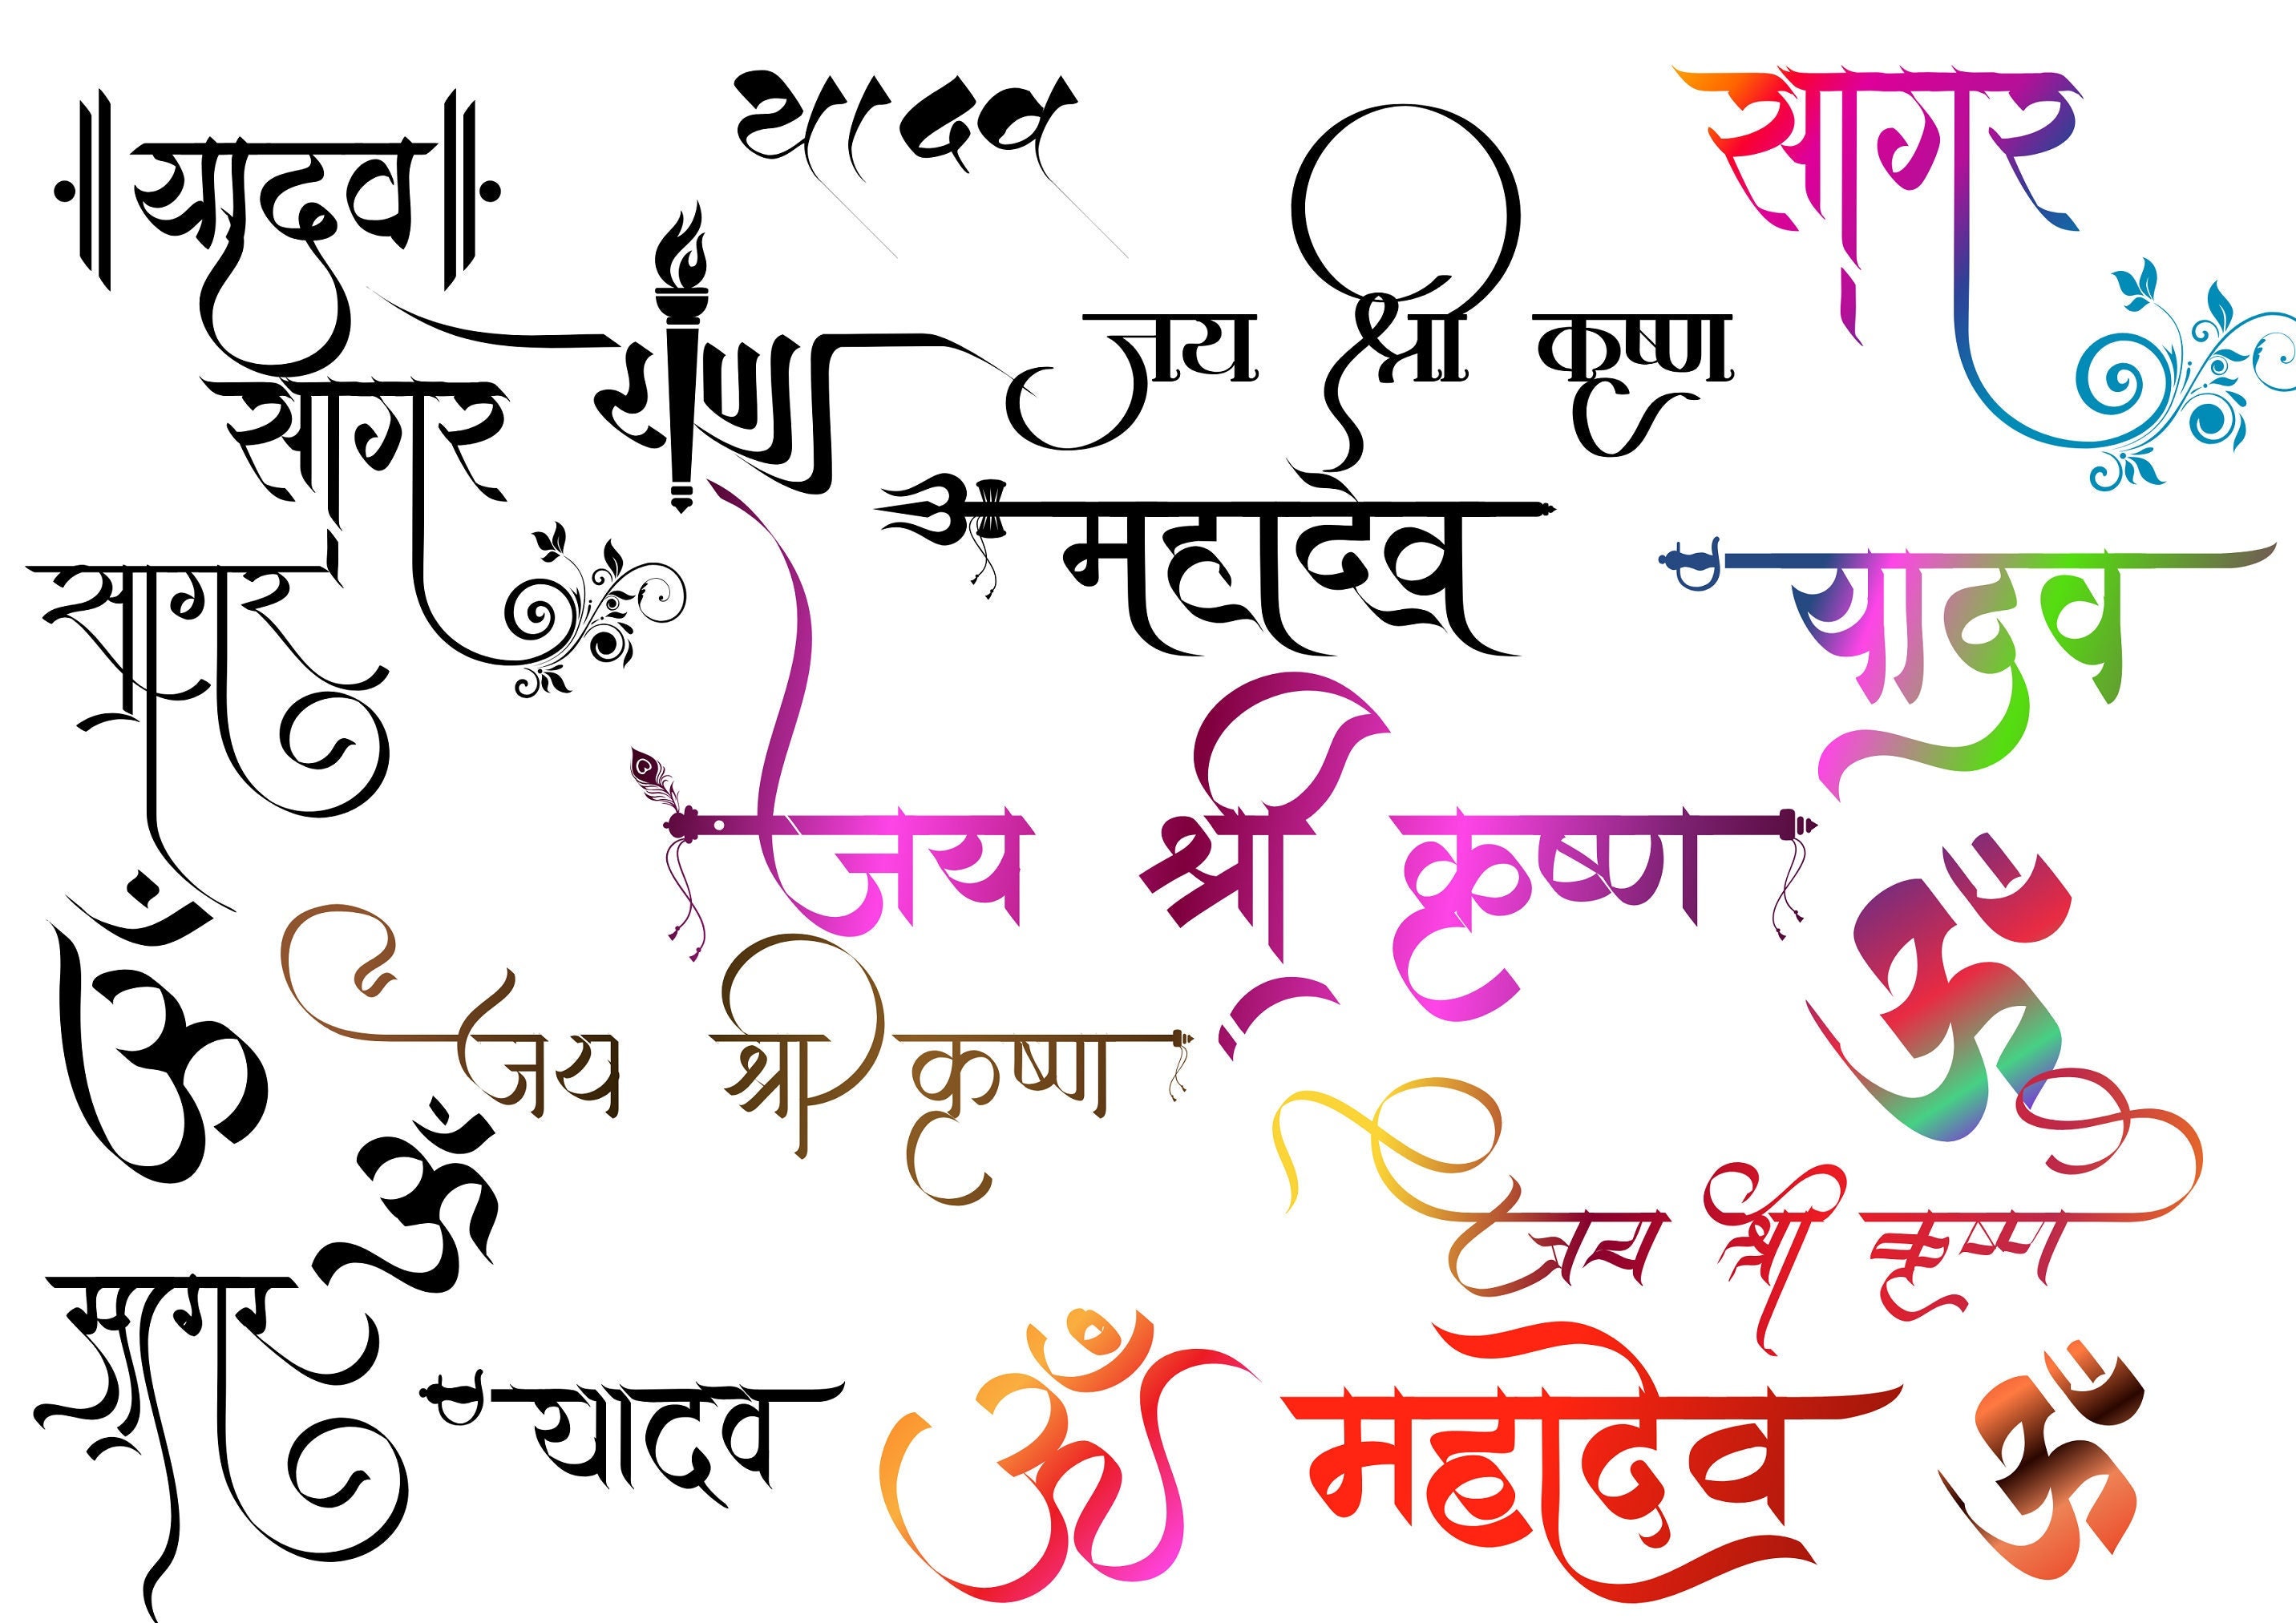 यादव
यादव
सागर
जय श्री कृष्ण
सागर
महादेव
यादव
सागर
जय श्री कृष्ण
ॐ
ॐ
जय श्री कृष्ण
ॐ
जय श्री कृष्ण
सागर
यादव
ॐ
महादेव
ॐ